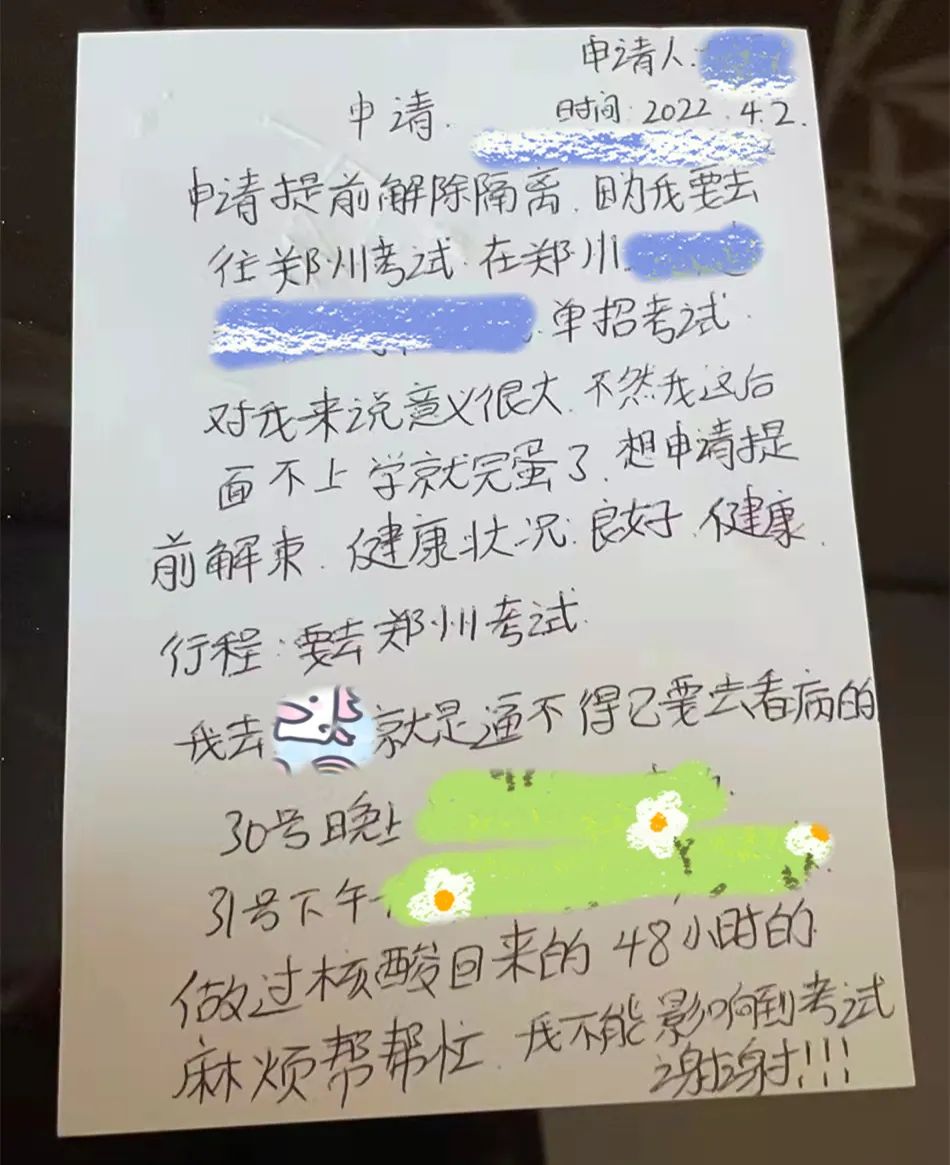 申请人:
申请.
时间: 2022.4.2.
申请提前解除隔离.因为我要去
往郑州考试.在郑州
单招考试.
对我来说意义很大.不然我这后
面不上学就完蛋了.想申请提
前解束.健康状况:良好.健康.
行程:要去郑州考试.
我去 就是逼不得已要去看病的
30号晚上
31号下午
做过核酸回来的 48小时的.
麻烦帮帮忙.我不能影响到考试
谢谢!!!